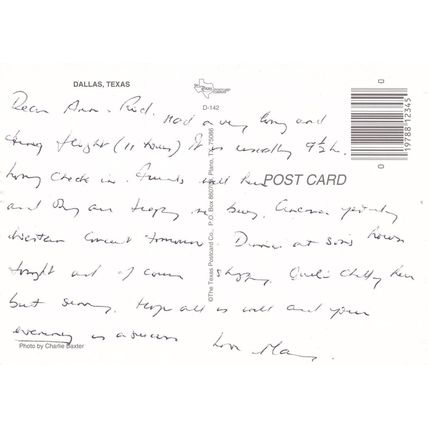 DALLAS, TEXAS
D-142
Dear Ann + Rod. Had a very long and
flight (11 hours) It is usually 9½ h.
long check in. Friends well here
and they are keeping us busy.
tomorrow Dinner at son's house
tonight and of course shopping. Quite chilly here
but sunny. Hope all is well and your
evening is a success Love
POST CARD
©The Texas Postcard Co., P.O. Box 860708, Plano, TX 75086
19788 12345
0
0
Photo by Charlie Baxter